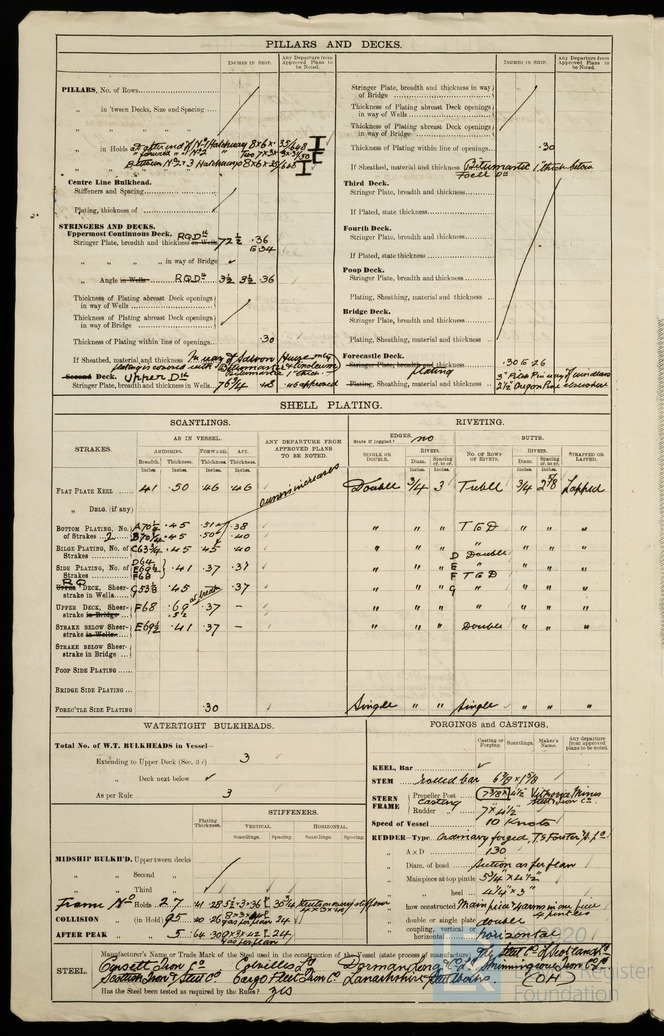 PILLARS AND DECKS.
INCHES IN SHIP.
Any Departure from Approved Plans to be Noted.
PILLARS, No. of Rows
„ in 'tween Decks, Size and Spacing
„ „ „
„ in Holds at after end of No 1 Hatchway 8 x 6 x .35/.48
Between No 2 & 3 Hatchways 8 x 6 x .35/.48
Centre Line Bulkhead.
Stiffeners and Spacing
Plating, thickness of
STRINGERS AND DECKS.
Uppermost Continuous Deck. R.Q.Dk
Stringer Plate, breadth and thickness in Wells 72½ .36 to .34
„ „ „ „ in way of Bridge
„ Angle in Wells R.Q.Dk 3½ 3½ .36
Thickness of Plating abreast Deck openings in way of Wells
Thickness of Plating abreast Deck openings in way of Bridge
Thickness of Plating within line of openings .30
If Sheathed, material and thickness In way of Saloon House only
plating is covered with Bitumastic & linoleum
Bitumastic 1" thick
Second Deck. Upper Dk
Stringer Plate, breadth and thickness in Wells 76¾ .48 as approved
INCHES IN SHIP.
Any Departure from Approved Plans to be Noted.
Stringer Plate, breadth and thickness in way of Bridge
Thickness of Plating abreast Deck openings in way of Wells
Thickness of Plating abreast Deck openings in way of Bridge
Thickness of Plating within line of openings .30
If Sheathed, material and thickness Bitumastic 1" thick
Focsle Do
Third Deck.
Stringer Plate, breadth and thickness
If Plated, state thickness
Fourth Deck.
Stringer Plate, breadth and thickness
If Plated, state thickness
Poop Deck.
Stringer Plate, breadth and thickness
Plating, Sheathing, material and thickness
Bridge Deck.
Stringer Plate, breadth and thickness
Plating, Sheathing, material and thickness
Forecastle Deck.
Stringer Plate, breadth and thickness plating .30 to .26
Plating, Sheathing, material and thickness 3" Pitch Pine in way of windlass
2½ Oregon Pine elsewhere
SHELL PLATING.
SCANTLINGS.
RIVETING.
STRAKES.
AS IN VESSEL.
AMIDSHIPS. FORWARD. AFT.
Breadth. Thickness. Thickness. Thickness.
Inches. Inches. Inches. Inches.
ANY DEPARTURE FROM APPROVED PLANS TO BE NOTED.
EDGES. State if joggled? no
SINGLE OR DOUBLE.
RIVETS.
Diam. Spacing cr. to cr.
BUTTS.
No. OF ROWS OF RIVETS.
RIVETS.
Diam. Spacing cr. to cr.
STRAPPED OR LAPPED.
FLAT PLATE KEEL 41 .50 .46 .46 owners increases Double ¾ 3 Treble ¾ 2⅝ Lapped
„ DBLG. (if any)
BOTTOM PLATING, No. of Strakes 2 A70½ .45 .51 .38 „ „ „ T & D „ „ „
B70¼ .45 .50 .40
BILGE PLATING, No. of Strakes C63¾ .45 .45 .40 „ „ „ „ „ „ „
SIDE PLATING, No. of Strakes D64 E69½ F68 .41 .37 .37 D Double E „ F T & D
R.Q. Upper DECK, Sheerstrake in Wells G53⅜ .45 .37 G „
UPPER DECK, Sheerstrake in Bridge F68 .69 .52 at break .37 – „ „ „ „ „ „ „
STRAKE BELOW Sheerstrake in Wells E69½ .41 .37 – Double
STRAKE BELOW Sheerstrake in Bridge
POOP SIDE PLATING
BRIDGE SIDE PLATING
FOREC'TLE SIDE PLATING .30 Single „ „ Single „ „ „
WATERTIGHT BULKHEADS.
Total No. of W.T. BULKHEADS in Vessel—
Extending to Upper Deck (Sec. 3 c) 3
„ Deck next below
As per Rule 3
Plating Thickness.
STIFFENERS.
VERTICAL. HORIZONTAL.
Scantlings. Spacing. Scantlings. Spacing.
MIDSHIP BULKH'D, Upper tween decks
„ „ Second „
„ „ Third „
Frame No Holds 27
COLLISION „ (in Hold) 95
AFTER PEAK „ 5
FORGINGS and CASTINGS.
Casting or Forging. Scantlings. Maker's Name. Any departure from approved plans to be noted.
KEEL, Bar
STEM rolled bar 6⅞ x 1⅝
STERN FRAME Propeller Post casting 7⅜ x 4½
Rudder „ 7 x 4½
Speed of Vessel 10 Knots
RUDDER—Type Ordinary forged, T.S. Forster
„ A x D 130
„ Diam. of head Section as per plan
„ Mainpiece at top pintle 5¼ x 4½"
„ „ heel 4¼ x 3"
„ how constructed Main piece & arms in one piece
„ double or single plate double
„ coupling, vertical or horizontal horizontal
STEEL.
Manufacturer's Name or Trade Mark of the Steel used in the construction of the Vessel (state process of manufacture) The Steel Co of Scotland Ld
Consett Iron Co Colvilles Ld Dorman Long & Co Ld Skinningrove Iron Co Ld
Scottish Iron & Steel Co. Cargo Fleet Iron Co. Lanarkshire Steel Co Ld (O.H.)
Has the Steel been tested as required by the Rules? Yes
2020
Register
Foundation